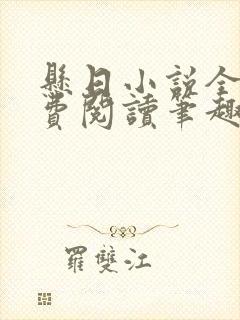 懸日小說全
費閱讀筆趣
羅雙江